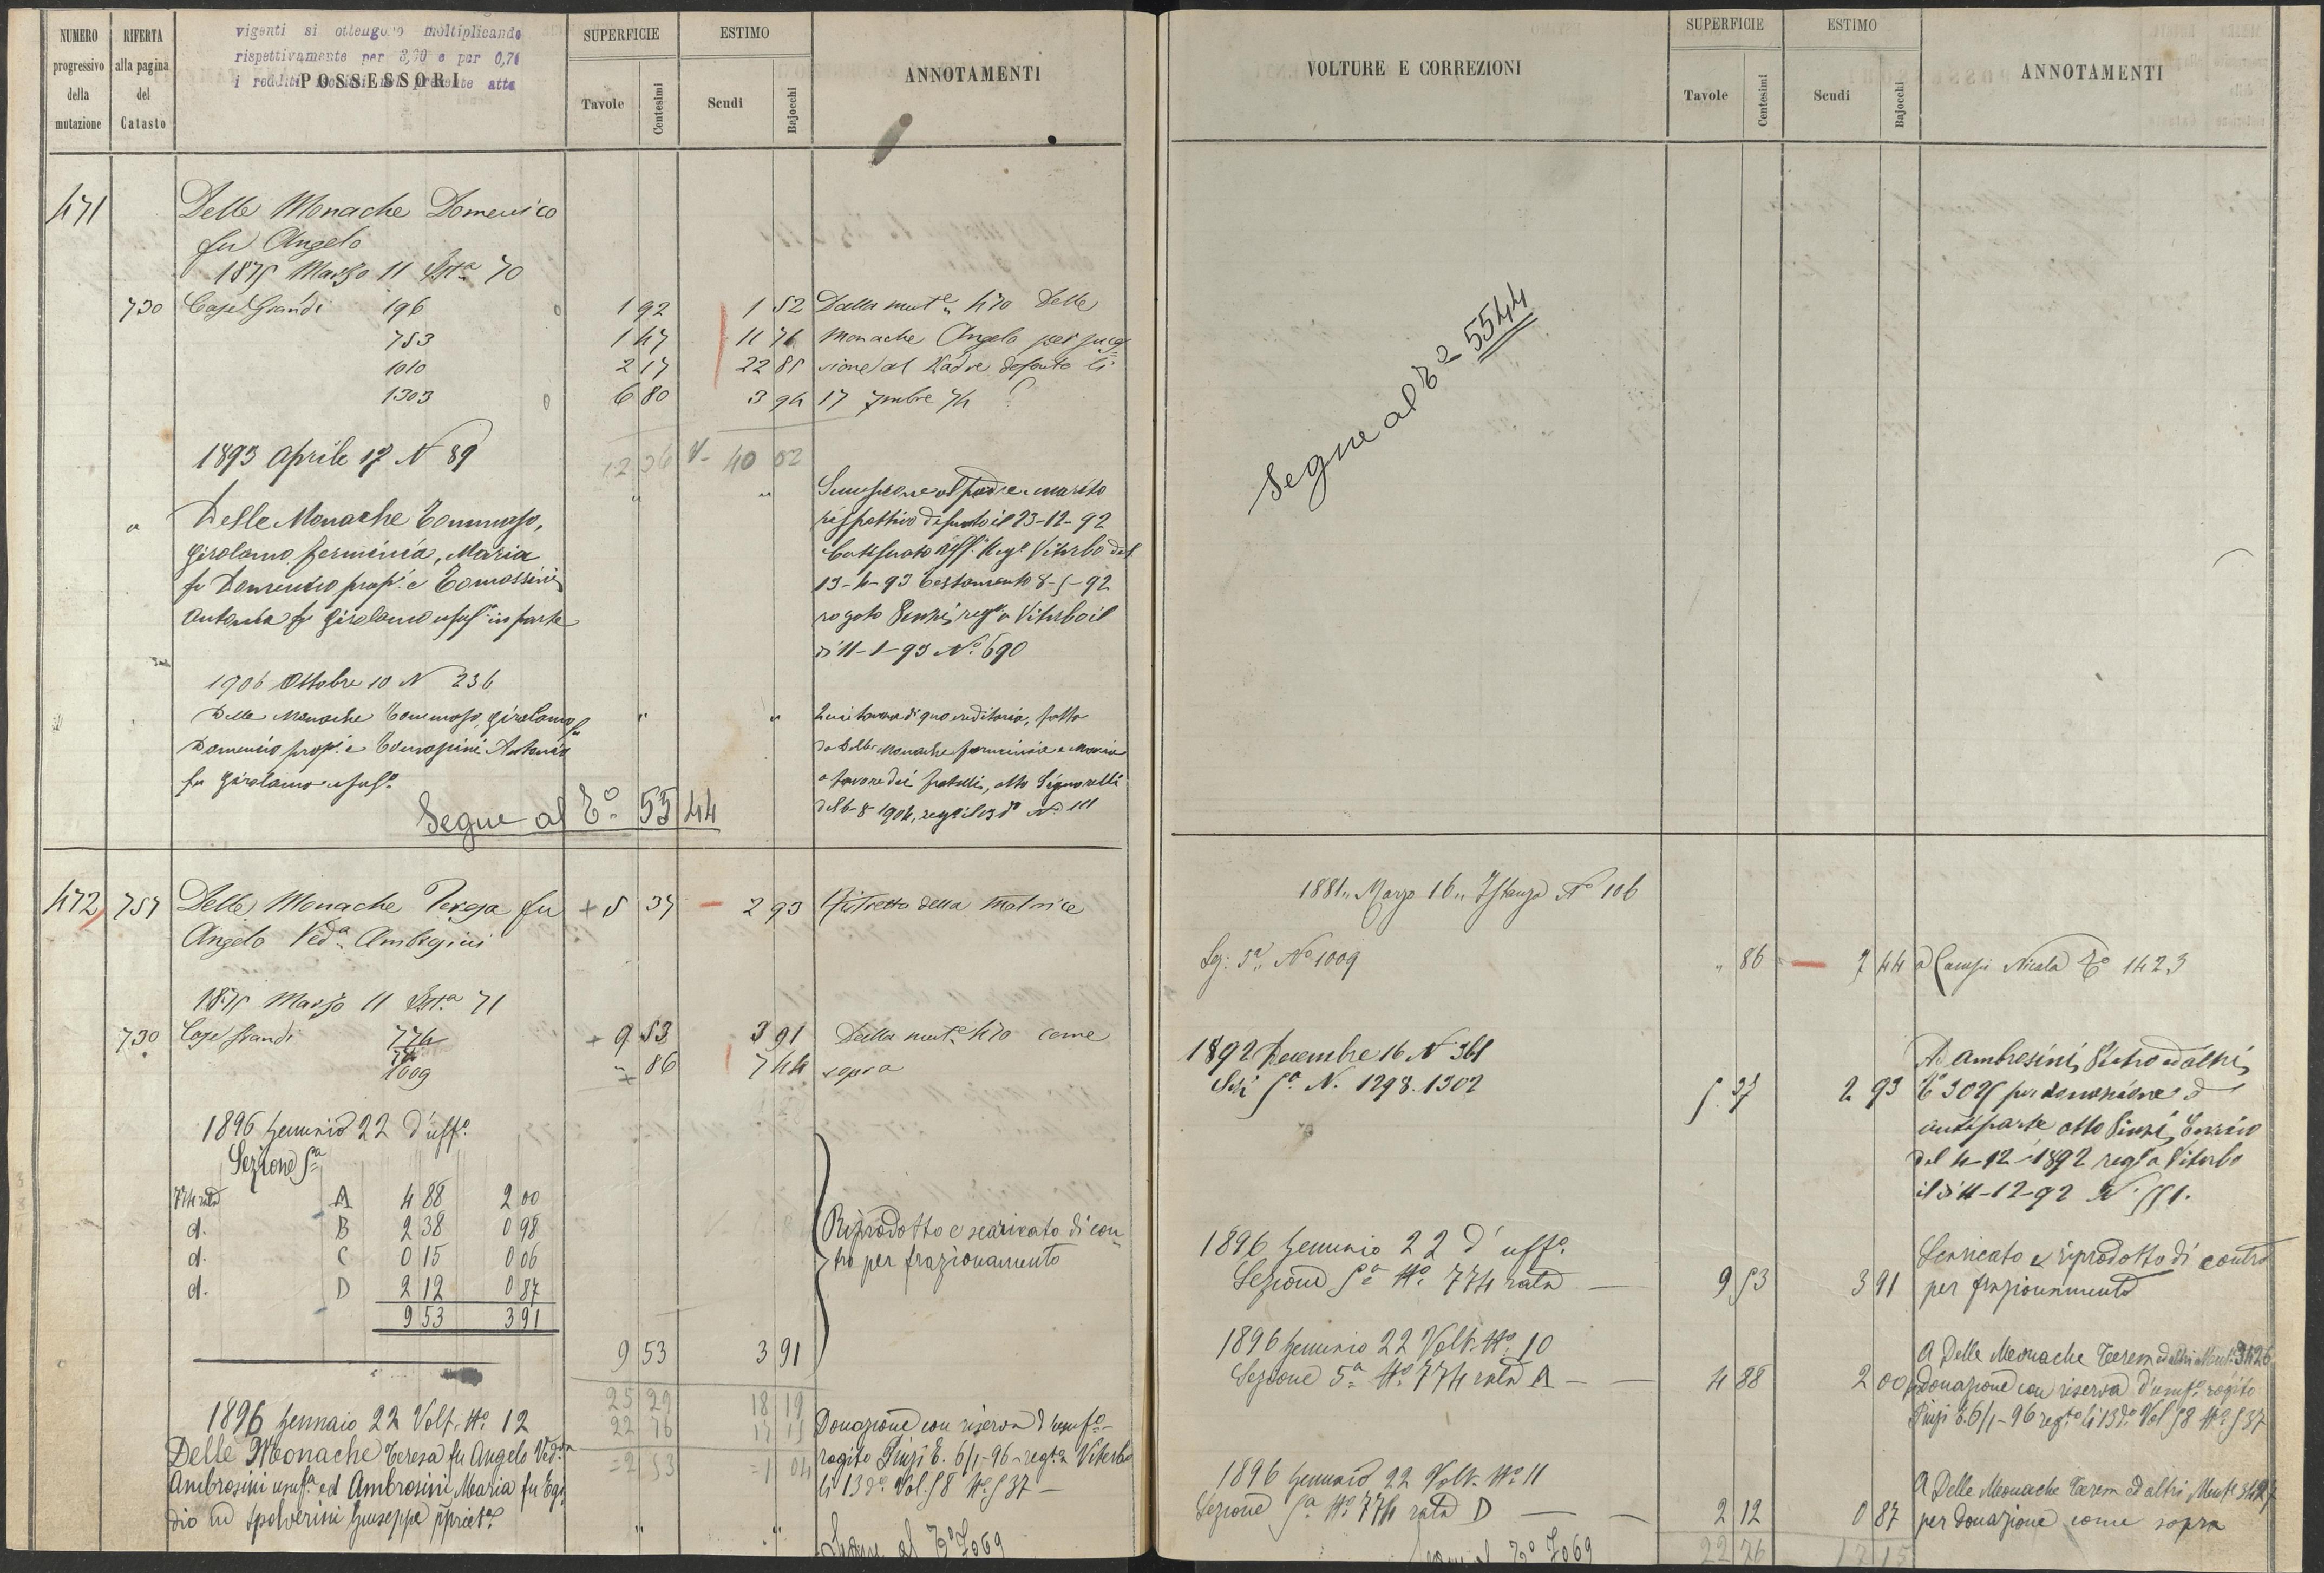 NUMERO progressivo della mutazione
RIFERTA alla pagina del Catasto
vigenti si ottengono moltiplicando
rispettivamente per 3,30 e per 0,71
POSSESSORI
SUPERFICIE
Tavole Centesimi
ESTIMO
Scudi Bajocchi
ANNOTAMENTI
471 Delle Monache Domenico
fu Angelo
1875 Marzo 11 70
730 Case Grandi 196 1 92 1 52 Dalla mut.e 470 Delle
753 1 47 11 71 Monache Angelo per succes
1010 2 17 22 85 sione al Padre defonto li
1303 6 80 3 94 17 7mbre 74
12 36 40 02
1893 Aprile 17 N 89
" " Successione al padre e marito
Delle Monache Tommaso, rispettivo defunto il 23-12-92
Girolamo, Ferminia, Maria Viterbo del
fu Domenico prop.i e Tomassini 13-4-93 Testamento 8-5-92
Antonia fu Girolamo usuf.a in parte rogato Pinzi, reg.o a Viterbo il
di 11-1-93 N.o 690
1906 Ottobre 10 N 236
Delle Monache Tommaso, Girolamo fu " "
Domenico prop.i e Tomassini Antonia da Delle Monache Ferminia e Maria
fu Girolamo usuf.a a favore dei fratelli, atto Signorelli
Segue al T.o 5544
472 757 Delle Monache Teresa fu + 5 37 2 93 Ristretto della Matrice
Angelo Ved.a Ambrosini
1875 Marzo 11 71
730 Case Grandi 774 + 9 53 3 91 Dalla mut.e 470 come
1009 " 86 7 44 sopra
1896 Gennaio 22 d'uff.o
Sezione 5a
774 rata A 4 88 2 00
d. B 2 38 0 98 Riprodotto e scaricato di con
d. C 0 15 0 06 tro per frazionamento
d. D 2 12 0 87
9 53 3 91
9 53 3 91
25 29 18 19
22 76 17 15
= 2 53 = 1 04
1896 Gennaio 22 Volt. No. 12 Donazione con riserva d'usuf.o
Delle Monache Teresa fu Angelo Ved.a rogito Pinzi E. 6/1-96 reg.to a Viterbo
Ambrosini usuf.a ed Ambrosini Maria fu Egi li 13 d.o Vol. 58 No. 537
dio in Spolverini Giuseppe
" " Segue al T.o 7069
VOLTURE E CORREZIONI
SUPERFICIE
Tavole Centesimi
ESTIMO
Scudi Bajocchi
ANNOTAMENTI
Segue al T.o 5544
1881 Marzo 16 Istanza No 106
Sez: 5a No 1009 " 86 7 44 a Nicola T.o 1423
1892 Decembre 16 N 361 Ad Ambrosini Pietro ed altri
Sez 5a N. 1298. 1302 5 37 2 93 T.o 3025 per donazione
atto Pinzi Enrico
del 4-12-1892 reg.o a Viterbo
il di 11-12-92 N. 551.
1896 Gennaio 22 d'uff.o Scaricato e riprodotto di contro
Sezione 5a No. 774 rata 9 53 3 91 per frazionamento
1896 Gennaio 22 Volt. No. 10 A Delle Monache Teresa ed altri Mut.e 3426
Sezione 5a No. 774 rata A 4 88 2 00 donazione con riserva d'usuf.o rogito
Pinzi E. 6/1-96 reg.to li 13 d.o Vol 58 No. 537
1896 Gennaio 22 Volt. No. 11 A Delle Monache Teresa ed altri Mut.e 3427
Sezione 5a No. 774 rata D 2 12 0 87 per donazione come sopra
Segue al T.o 7069 22 76 17 15